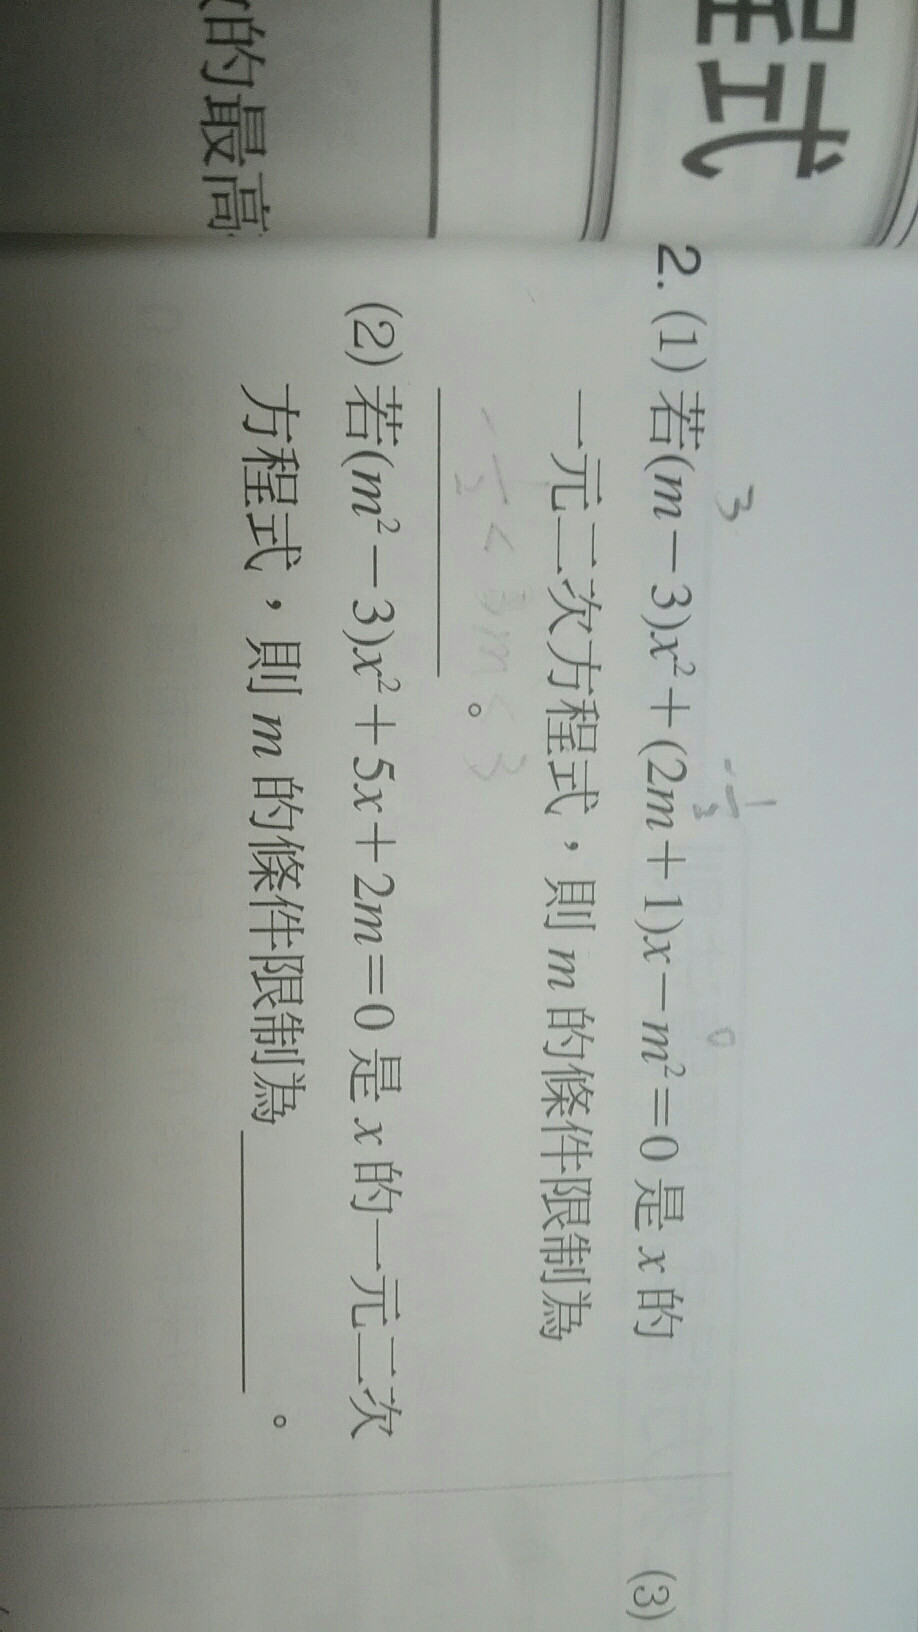 程式
的最高
2. (1) 若(m−3)x²+(2m+1)x−m²=0 是 x 的
一元二次方程式，則 m 的條件限制為
。
(2) 若(m²−3)x²+5x+2m=0 是 x 的一元二次
方程式，則 m 的條件限制為 。
(3)
3
-1/2
0
-1/2 < 3m < 3